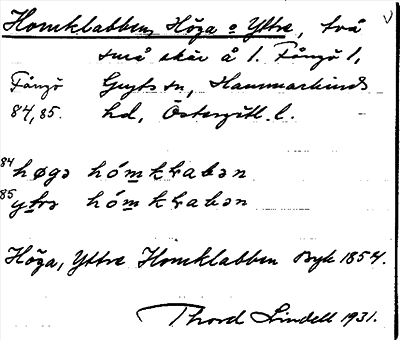 Homklabben, Höga o Yttre, två
små skär å 1. Fångö 1,
Fångö Gryts sn, Hammarkinds
84,85. hd, Östergötl. l.
84 høgə hómkḷabən
85 ytrə hómkḷabən
Höga, Yttre Homklabben Byk 1854.
Thord Lindell 1931.